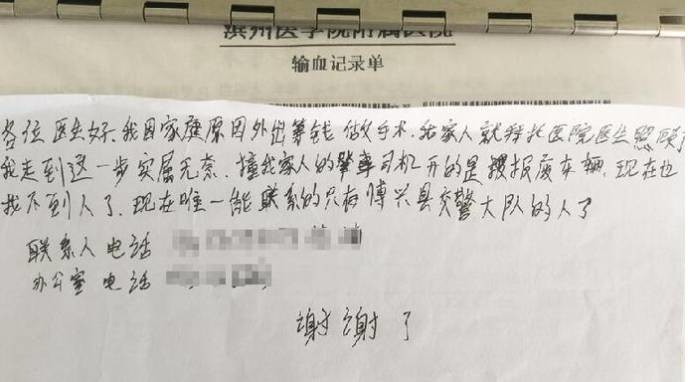 滨州医学院附属医院
输血记录单
各位医生好,我因家庭原因外出筹钱做手术,我家人就拜托医院医生照顾了
我走到这一步实属无奈,撞我家人的肇事司机开的是报废车辆,现在也
找不到人了,现在唯一能联系的只有博兴县交警大队的人了
联系人电话
办公室电话
谢谢了